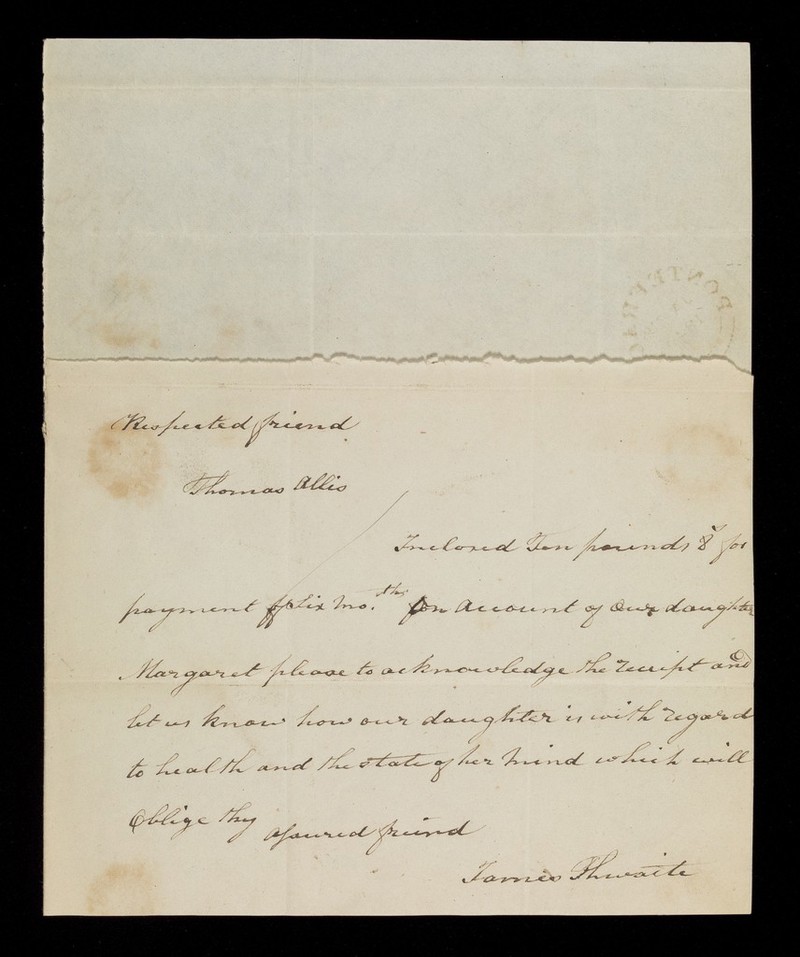 PONTEFRACT
Respected friend
Thomas Allis
Inclosed Ten pounds for
payment of Six Mo.ths on account of Our daughter
Margaret please to acknowledge the receipt and
let us know how our daughter is with regard
to health and the state of her Mind which will
Oblige thy assured friend
James Thwaite